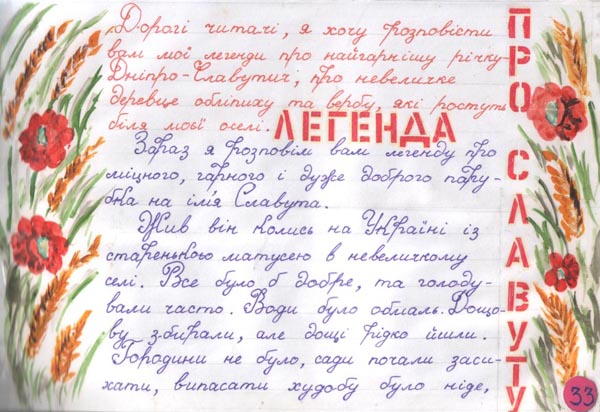 Дорогі читачі, я хочу розповісти
вам мої легенди про найгарнішу річку
Дніпро-Славутич, про невеличке
деревце обліпиху та вербу, які ростуть
біля моєї оселі.
ЛЕГЕНДА
ПРО СЛАВУТУ
Зараз я розповім вам легенду про
міцного, гарного і дуже доброго пару-
бка на ім'я Славута.
Жив він колись на Україні із
старенькою матусею в невеличкому
селі. Все було б добре, та голоду-
вали часто. Води було обмаль. Дощо-
ву збирали, але дощі рідко йшли.
Городини не було, сади почали заси-
хати, випасати худобу було ніде,
33